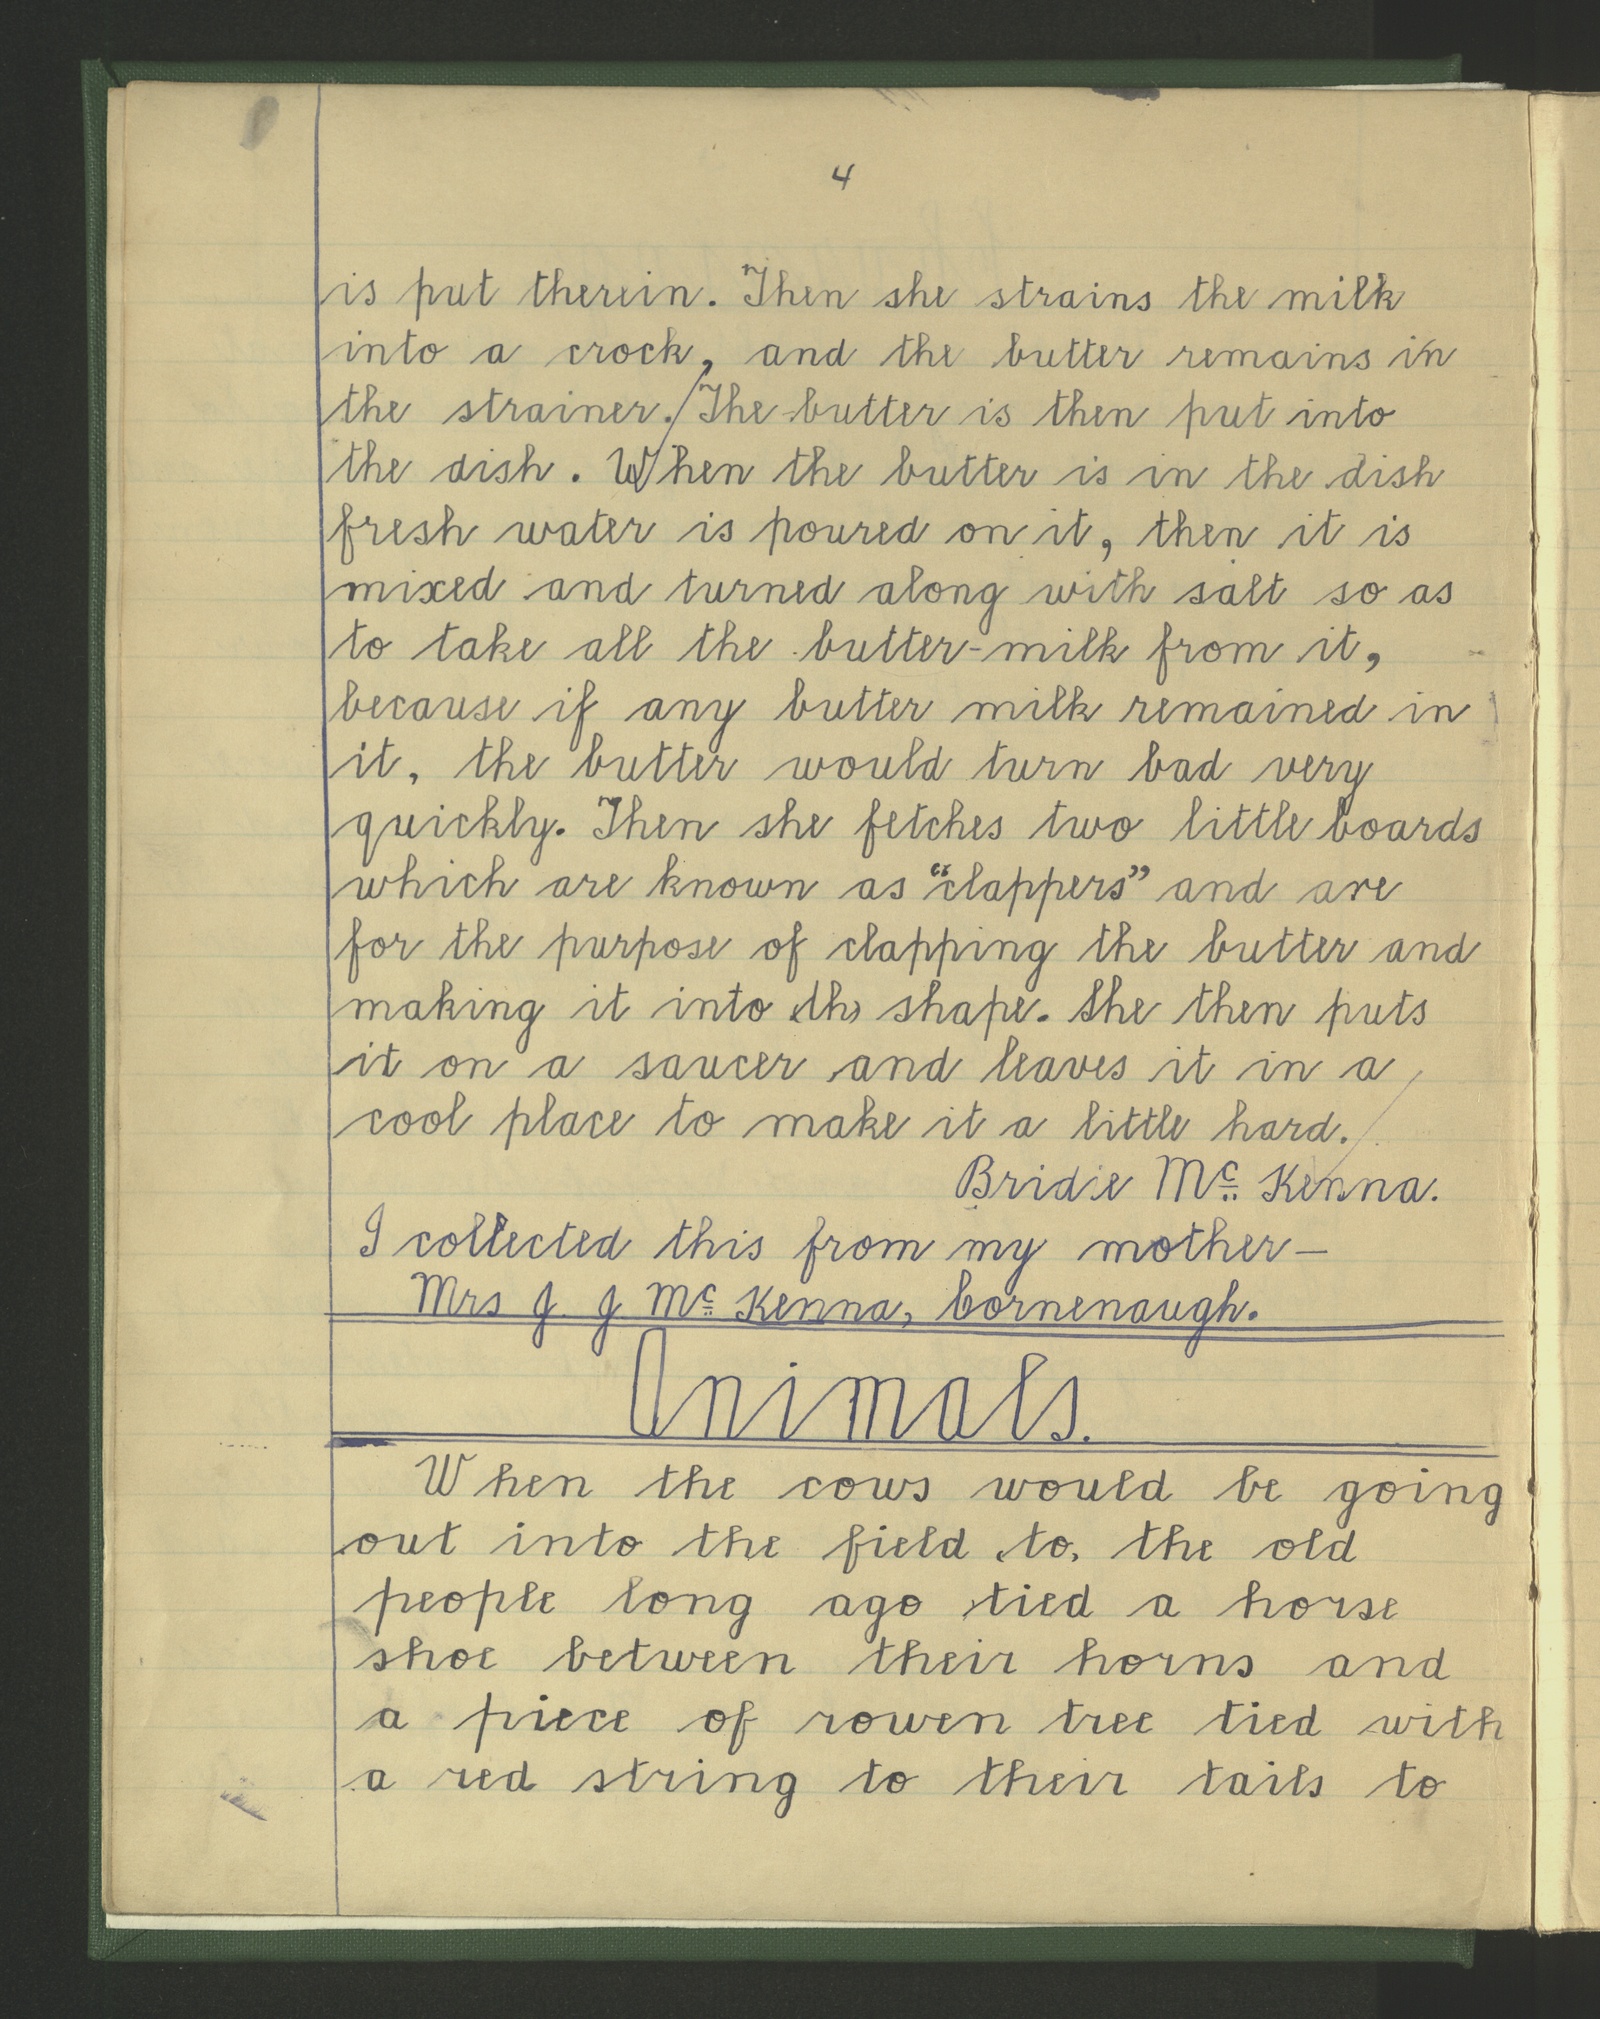 4
is put therein. Then she strains the milk
into a crock, and the butter remains in
the strainer. The butter is then put into
the dish. When the butter is in the dish
fresh water is poured on it, then it is
mixed and turned along with salt so as
to take all the butter-milk from it,
because if any butter milk remained in
it, the butter would turn bad very
quickly. Then she fetches two little boards
which are known as "clappers" and are
for the purpose of clapping the butter and
making it into (th) shape. She then puts
it on a saucer and leaves it in a
cool place to make it a little hard.
Bridie Mc Kenna.
I collected this from my mother—
Mrs J. J. Mc Kenna, Cornenaugh.
Animals.
When the cows would be going
out into the field (to) the old
people long ago tied a horse
shoe between their horns and
a piece of rowen tree tied with
a red string to their tails to